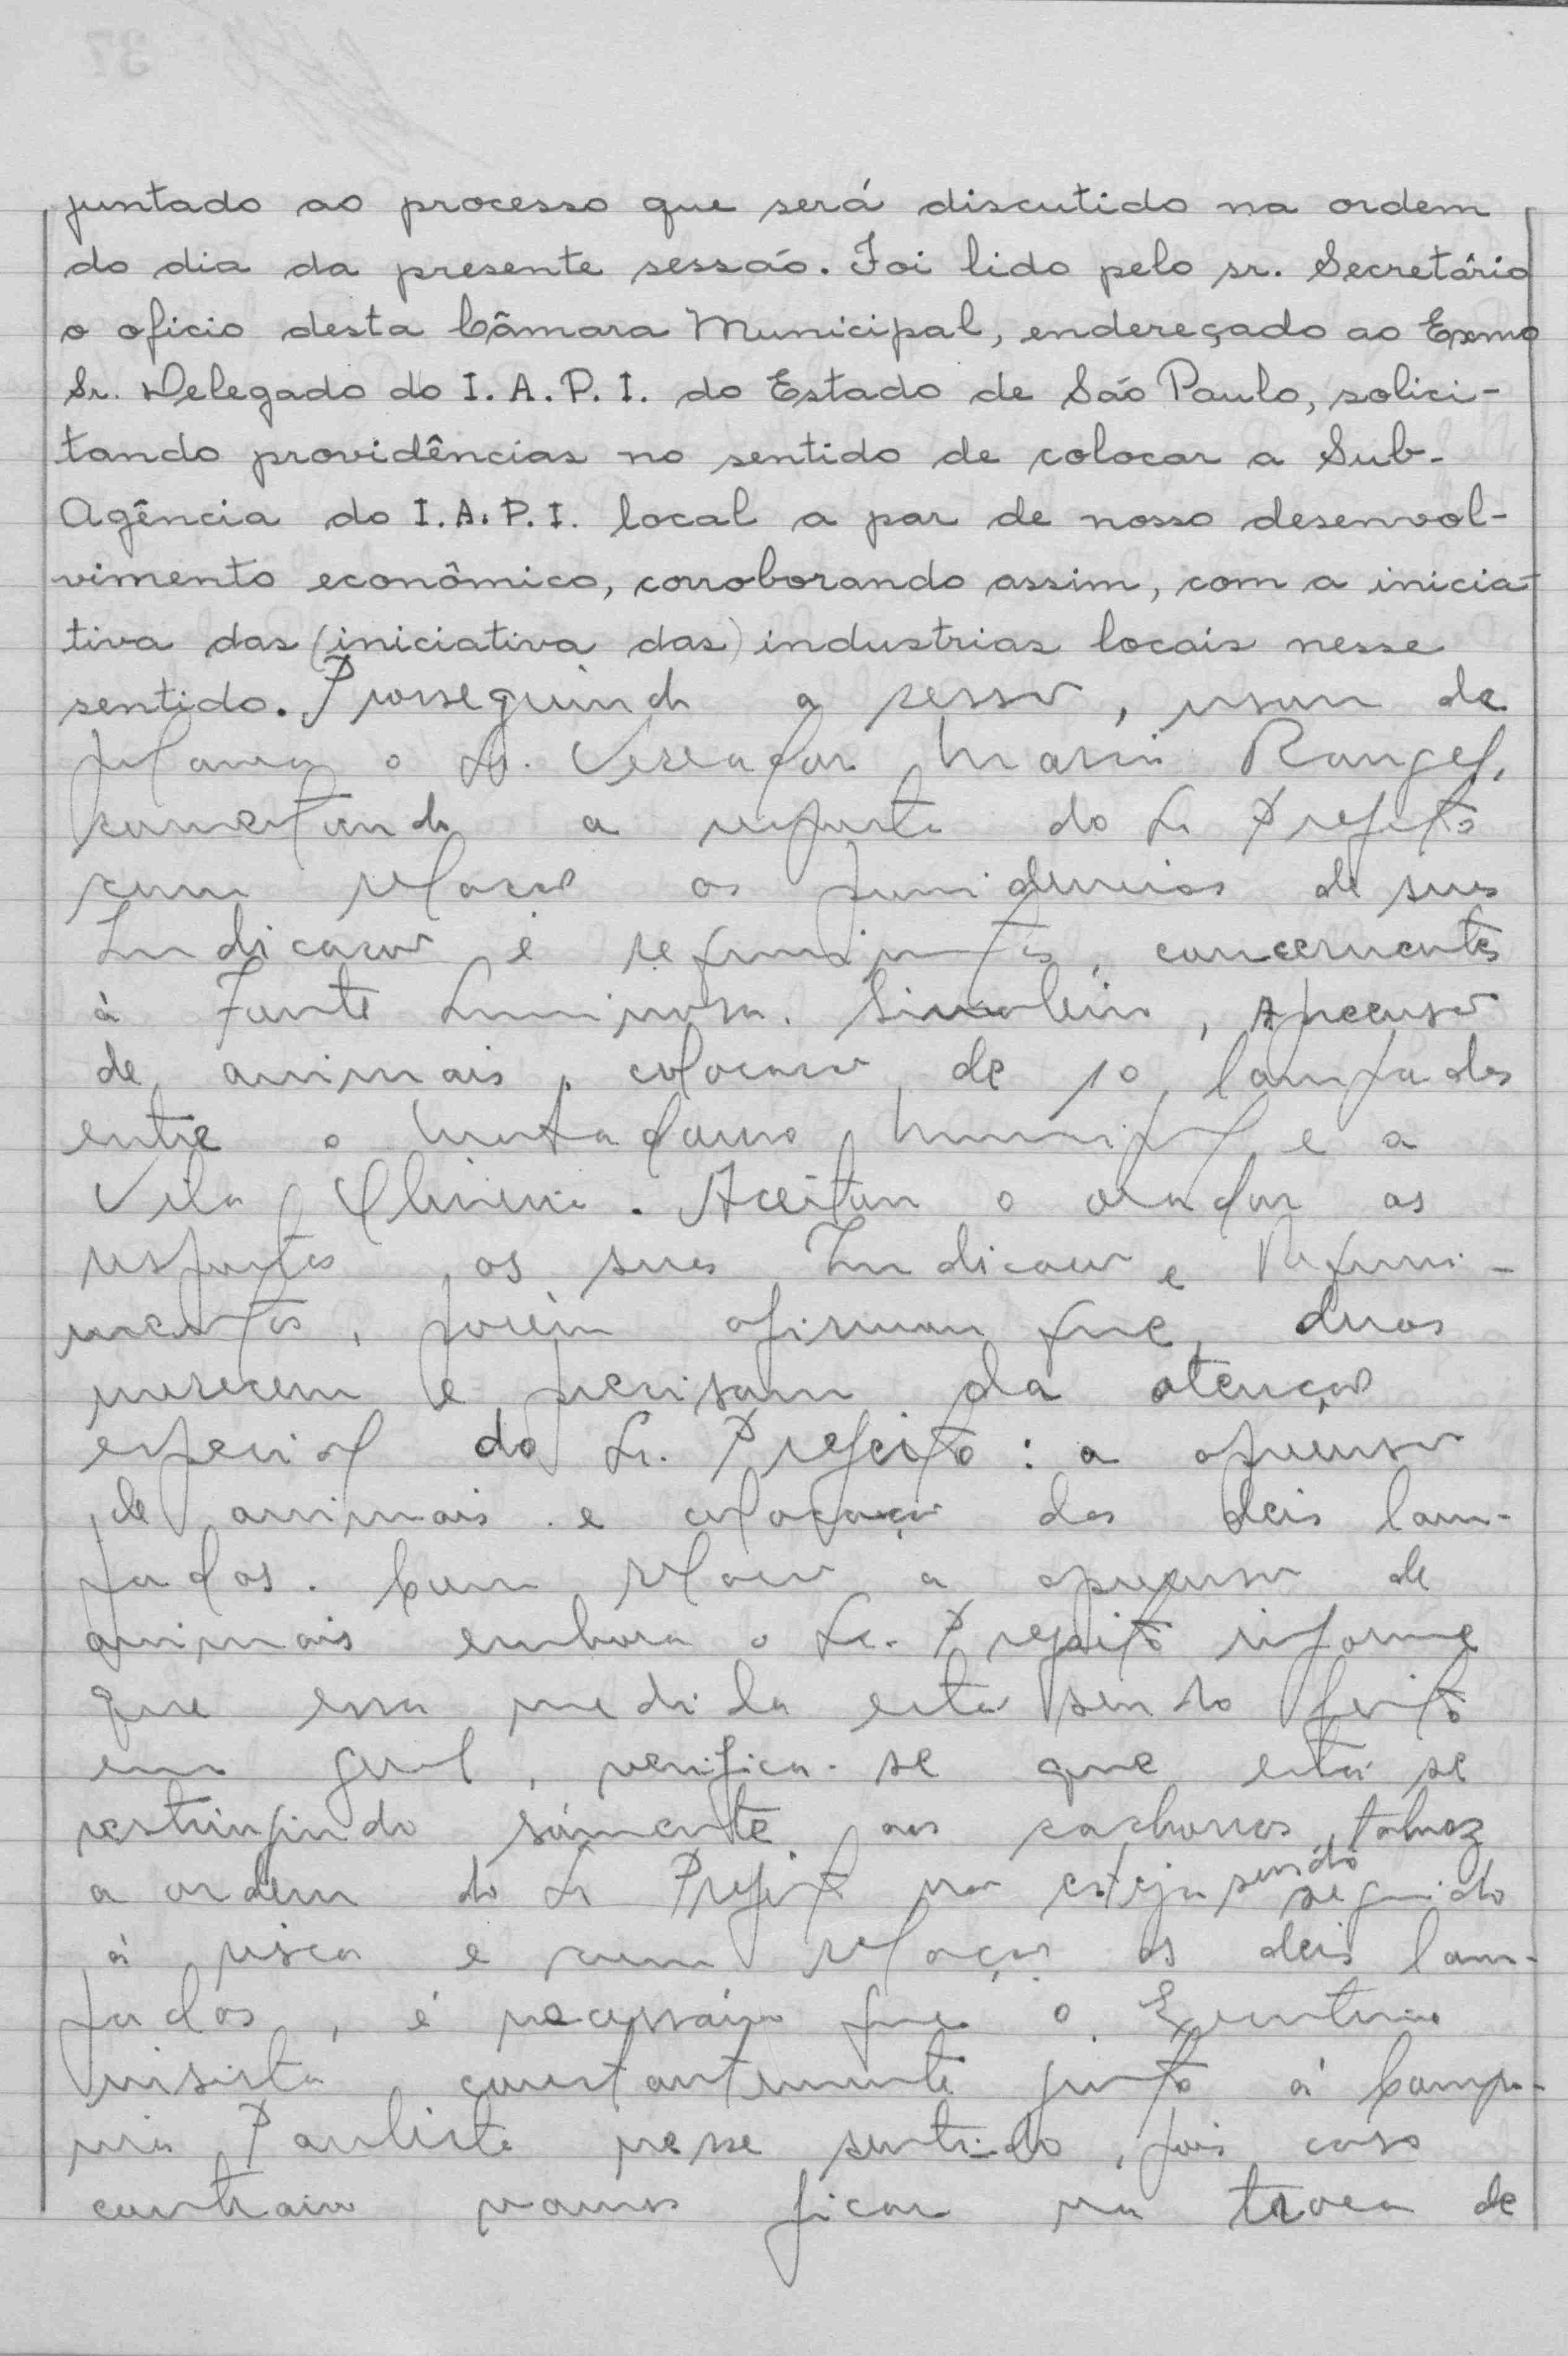 juntado ao processo que será discutido na ordem
do dia da presente sessão. Foi lido pelo sr. Secretário
o oficio desta Câmara Municipal, endereçado ao Exmo
Sr. Delegado do I. A. P. I. do Estado de São Paulo, solici-
tando providências no sentido de colocar a Sub-
Agência do I. A. P. I. local a par de nosso desenvol-
vimento econômico, corroborando assim, com a inicia-
tiva das (iniciativa das) industrias locais nesse
sentido. Prosseguindo a sessão, usou de
palavra o Sr. Vereador Mario Rangel,
comentando a resposta do Sr Prefeito
com relação as providencias de suas
Indicação e requerimentos, concernentes
à Fonte Luminosa. , apreensão
de animais, colocação de 10 lampadas
entre o Matadouro Municipal e a
Vila . Aceitou o orador as
respostas as suas Indicação e Requeri-
mentos, porém afirmou que duas
merecem e precisam da atenção
especial do Sr. Prefeito: a apreensão
de animais e colocação das deis lam-
padas. Com relação a apreensão de
animais embora o Sr. Prefeito informe
que essa medida está sendo feito
em geral, verifica-se que está se
restringindo sómente aos cachorros, talvez
a ordem do Sr Prefeito não esteja sendo seguido
á risca e com relação as deis lam-
padas, é necessário que o Executivo
insista constantemente junto á Compa-
nia Paulista nesse sentido, pois caso
contrario vamos ficar na troca de